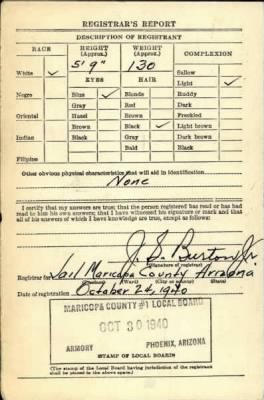 REGISTRAR'S REPORT
DESCRIPTION OF REGISTRANT
RACE HEIGHT (Approx.) WEIGHT (Approx.) COMPLEXION
5' 9" 130
Sallow
White ✓ EYES HAIR Light ✓
Negro Blue ✓ Blonde Ruddy
Gray Red Dark
Oriental Hazel Brown Freckled
Brown Black ✓ Light brown
Indian Black Gray Dark brown
Bald Black
Filipino
Other obvious physical characteristics that will aid in identification
None
I certify that my answers are true; that the person registered has read or has had
read to him his own answers; that I have witnessed his signature or mark and that
all of his answers of which I have knowledge are true, except as follows:
J. S. Burton, Jr.
(Signature of registrar)
Registrar for Jail Maricopa County Arizona
(Precinct) (Ward) (City or county) (State)
Date of registration October 24, 1940
MARICOPA COUNTY #1 LOCAL BOARD
OCT 30 1940
ARMORY PHOENIX, ARIZONA
STAMP OF LOCAL BOARD
(The stamp of the Local Board having jurisdiction of the registrant
shall be placed in the above space.)